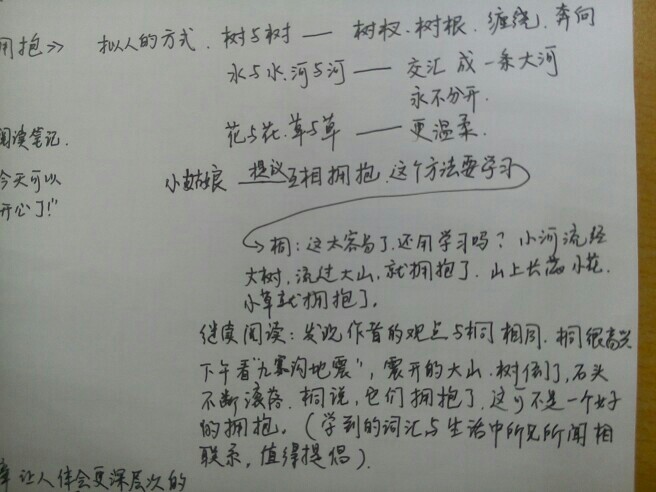 拥抱》 拟人的方式. 树与树 — 树杈. 树根. 缠绕. 奔向
水与水. 河与河 — 交汇成一条大河
永不分开.
花与花. 草与草 — 更温柔.
阅读笔记.
今天可以
开心了!"
小姑娘 提议 互相拥抱. 这个方法要学习
桐: 这太容易了. 还用学习吗? 小河流经
大树. 流过大山. 就拥抱了. 山上长满小花.
小草就拥抱了.
继续阅读: 发现作者的观点与桐相同. 桐很高兴
下午看"九寨沟地震", 震开的大山. 树倒了, 石头
不断滚落. 桐说, 它们拥抱了. 这可不是一个好
的拥抱. (学到的词汇与生活中所见所闻相
联系, 值得提倡).
让人体会更深层次的